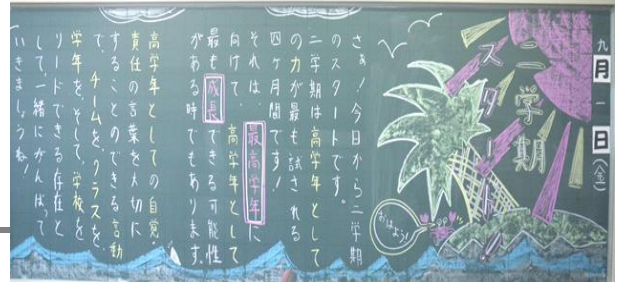 九月一日(金)
二学期
スタート!!
おはよう!
さあ!今日から二学期
のスタートです。
二学期は高学年として
の力が最も試される
四ヶ月間です!
それは、最高学年に
向けて、高学年として
最も成長できる可能性
がある時でもあります。
高学年としての自覚・
責任の言葉を大切に
することのできる言動
で、チームを、クラスを、
学年を、そして、学校を
リードできる存在と
して、一緒にがんばって
いきましょうね!